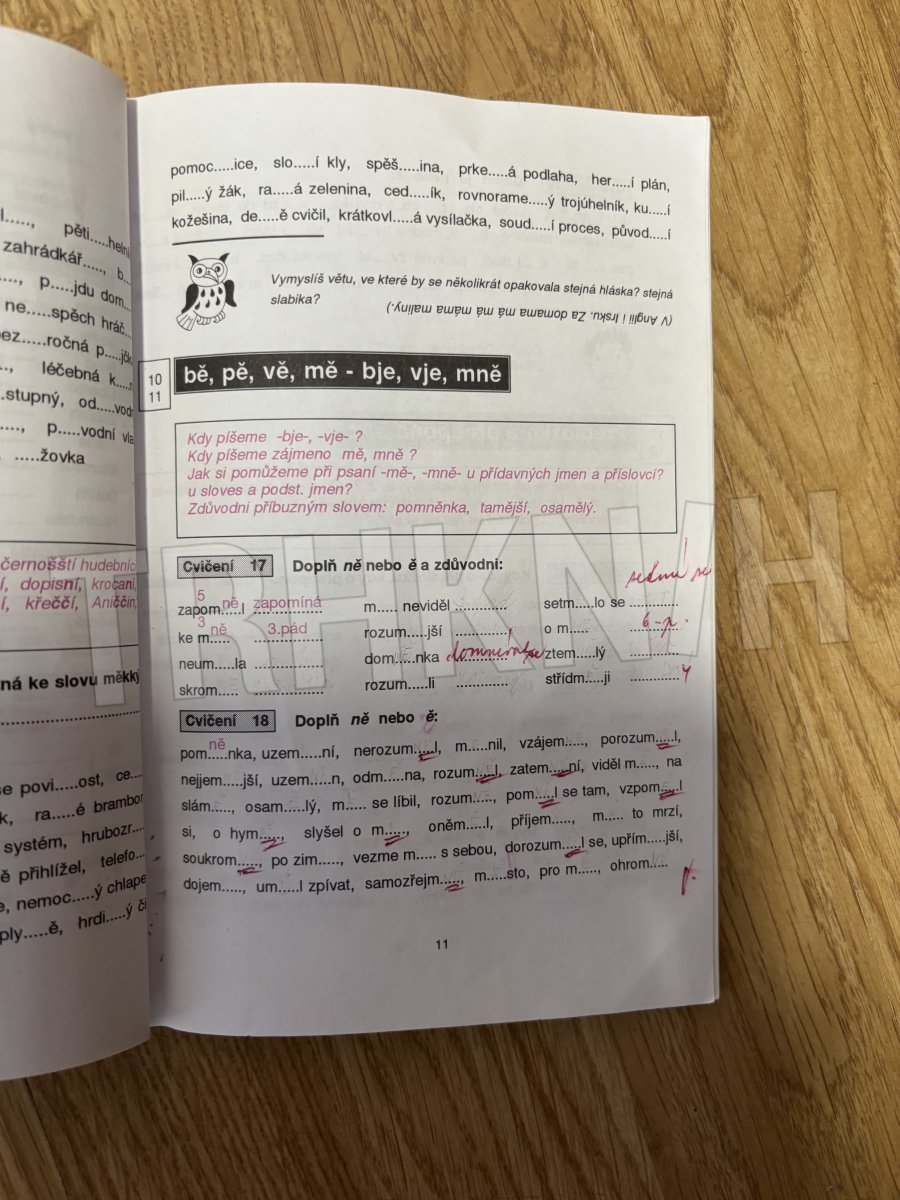 l....., pěti.....helní
zahrádkář....., b...
..., p.....jdu dom...
ne.....spěch hráč...
.....ročná p.....jčk
..., léčebná k....
.stupný, od.....vodn
....., p.....vodní vla
.....žovka
černošští hudebníc
í, dopisní, krocaní,
í, křeččí, Aniččin,
ná ke slovu měkký
se povi.....ost, ce....
k, ra.....é brambor
systém, hrubozr....
ě přihlížel, telefo...
e, nemoc.....ý chlape
ply.....ě, hrdi.....ý či
pomoc.....ice, slo.....í kly, spěš.....ina, prke.....á podlaha, her.....í plán,
pil.....ý žák, ra.....á zelenina, ced.....ík, rovnorame.....ý trojúhelník, ku.....í
kožešina, de.....ě cvičil, krátkovl.....á vysílačka, soud.....í proces, původ.....í
Vymyslíš větu, ve které by se několikrát opakovala stejná hláska? stejná
slabika?
(V Anglii i Irsku. Za domama má má máma maliny.)
10
11
bě, pě, vě, mě - bje, vje, mně
Kdy píšeme -bje-, -vje- ?
Kdy píšeme zájmeno mě, mně ?
Jak si pomůžeme při psaní -mě-, -mně- u přídavných jmen a příslovcí?
u sloves a podst. jmen?
Zdůvodni příbuzným slovem: pomněnka, tamější, osamělý.
Cvičení 17 Doplň ně nebo ě a zdůvodni:
5
zapom ně l zapomíná m..... neviděl ............ setm.....lo se ............
3
ke m ně 3.pád rozum.....jší ............ o m..... 6-p.
neum.....la ............ dom.....nka ............ ztem.....lý ............
skrom..... ............ rozum.....li ............ střídm.....ji ............
Cvičení 18 Doplň ně nebo ě:
pom ně nka, uzem.....ní, nerozum.....l, m.....nil, vzájem....., porozum.....l,
nejjem.....jší, uzem.....n, odm.....na, rozum.....l, zatem.....ní, viděl m....., na
slám....., osam.....lý, m..... se líbil, rozum....., pom.....l se tam, vzpom.....l
si, o hym....., slyšel o m....., oněm.....l, příjem....., m..... to mrzí,
soukrom....., po zim....., vezme m..... s sebou, dorozum.....l se, upřím.....jší,
dojem....., um.....l zpívat, samozřejm....., m.....sto, pro m....., ohrom.....
11
TRHKNIH